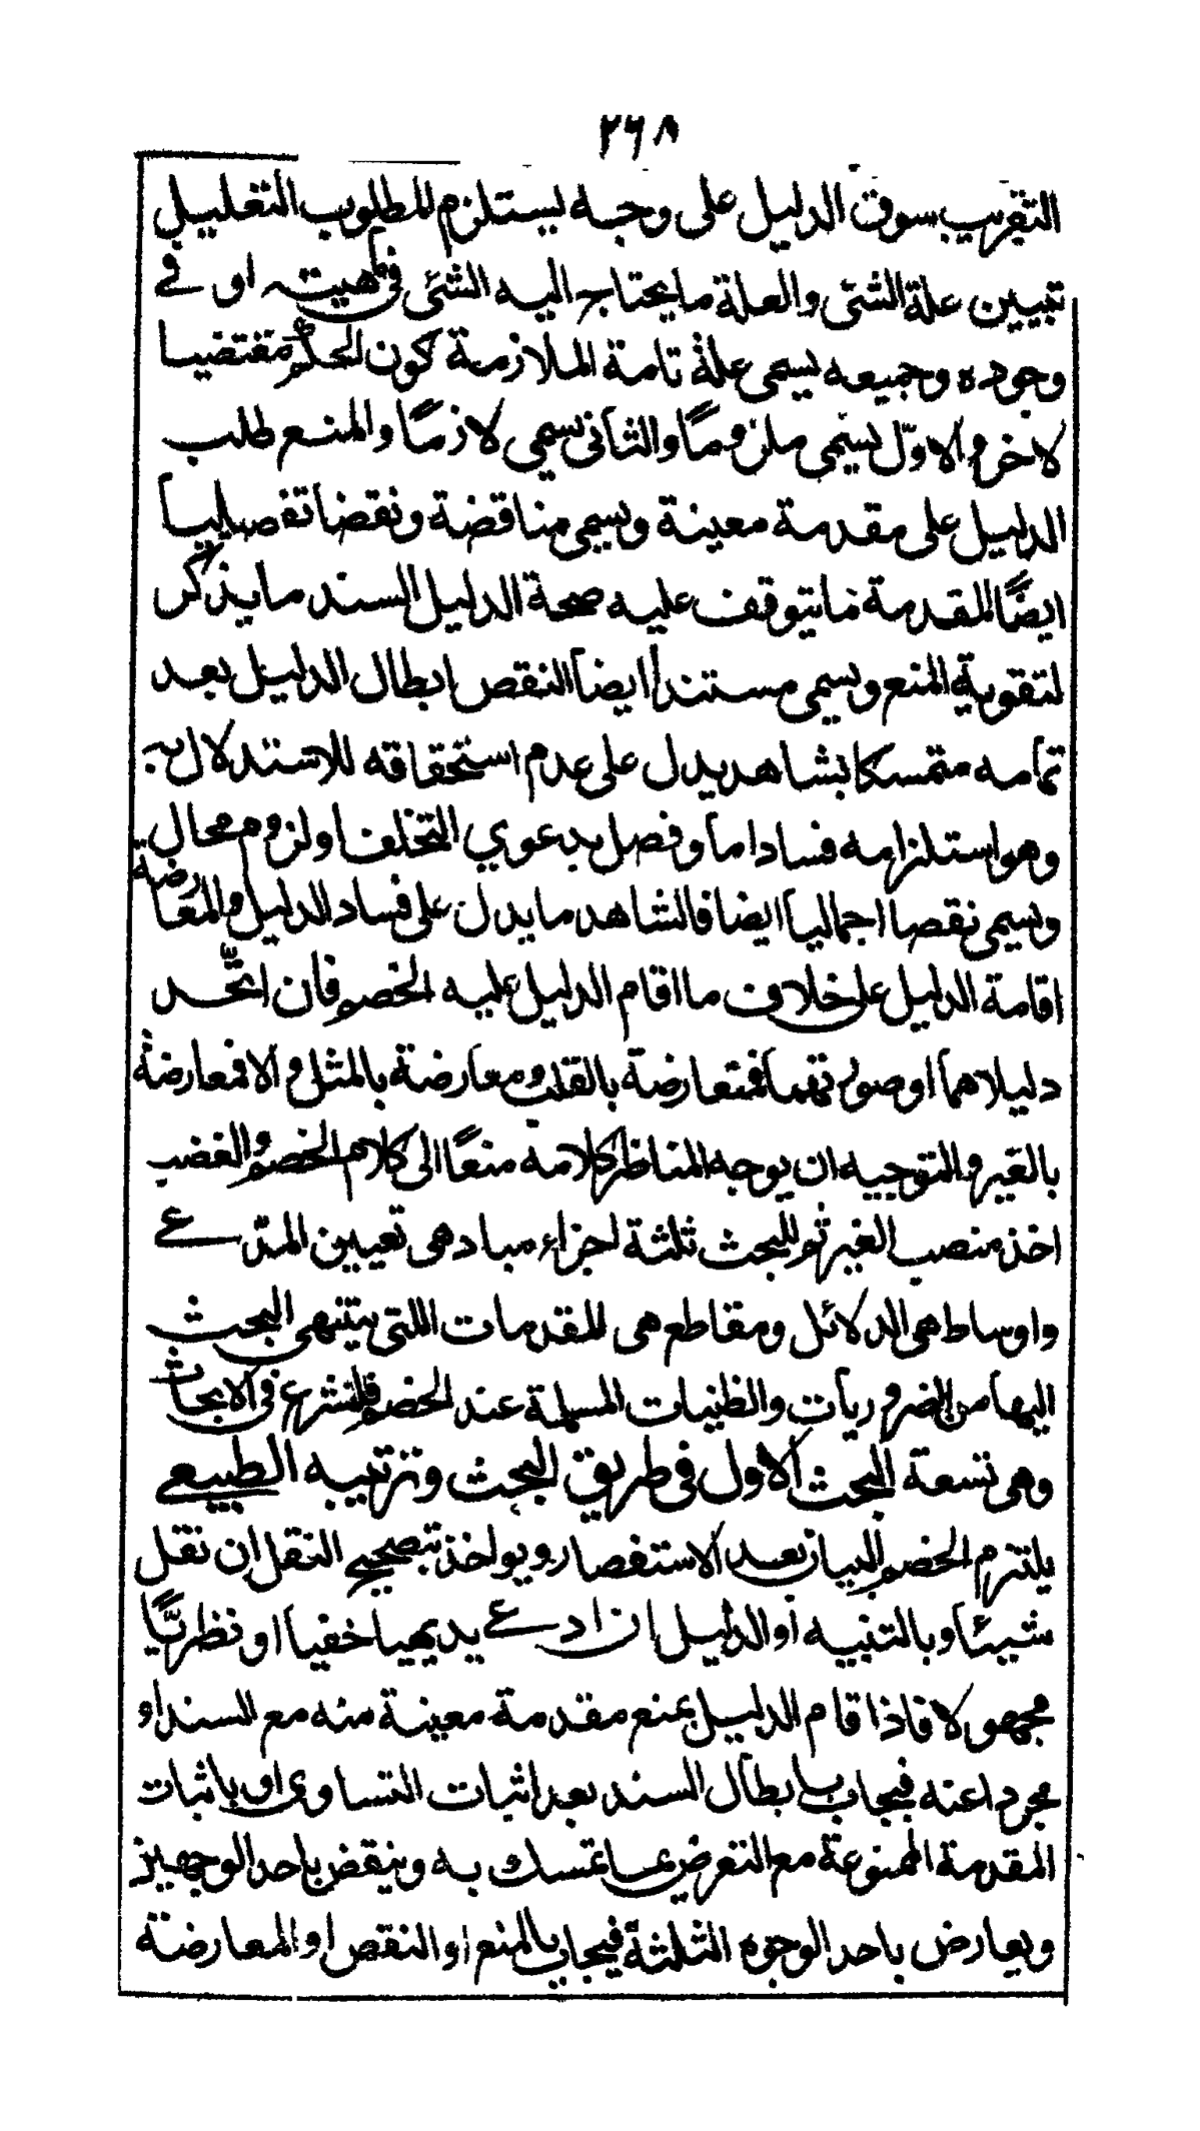 ٢٦٨
التقريب سوق الدليل على وجه يستلزم للمطلوب التعليل
تبيين علة الشئ والعلة ما يحتاج اليه الشئ في مهيته او في
وجوده وجميعه يسمى علة تامة الملازمة كون الحكم مقتضيا
لاخر والاوّل يسمى ملزومًا والثاني يسمى لازمًا والمنع طلب
الدليل على مقدمة معينة ويسمى مناقضة ونقضا تفصيليا
ايضًا المقدمة ما يتوقف عليه صحة الدليل السند ما يذكر
لتقوية المنع ويسمى مستندا ايضا النقص ابطال الدليل بعد
تمامه متمسكا بشاهد يدل على عدم استحقاقه للاستدلال به
وهو استلزامه فسادا ما وفصل بدعوي التخلف او لزوم محال
ويسمى نقصا اجماليا ايضا فالشاهد ما يدل على فساد الدليل والمعارضة
اقامة الدليل على خلاف ما اقام الدليل عليه الخصم فان اتّحد
دليلاهما او صورتهما فمعارضة بالقلب ومعارضة بالمثل والا فمعارضة
بالغير والتوجيه ان يوجه المناظر كلامه منعًا الى كلام الخصم والغضب
اخذ منصب الغير ثم للبحث ثلثة اجزاء مباد هى تعيين المدّعے
واوساط هى الدلائل ومقاطع هى للمقدمات اللتى ينتهى البحث
اليها من الضروريات والظنيات المسلمة عند الخصم فلنشرع في الابحاث
وهى تسعة البحث الاول في طريق البحث وترتيبه الطبيعے
يلتزم الخصم البيان بعد الاستفصار ويواخذ بتصحيح النقل ان نقل
شيئا وبالتنبيه او الدليل ان ادعے بديهيا خفيا او نظريًّا
مجهولا فاذا قام الدليل يمنع مقدمة معينة منه مع السند او
مجردا عنه فيجاب بابطال السند بعد اثبات التساوى او باثبات
المقدمة الممنوعة مع التعرض بما تمسك به وينقض باحد الوجهين
ويعارض باحد الوجوه الثلثة فيجاب بالمنع او النقص او المعارضة